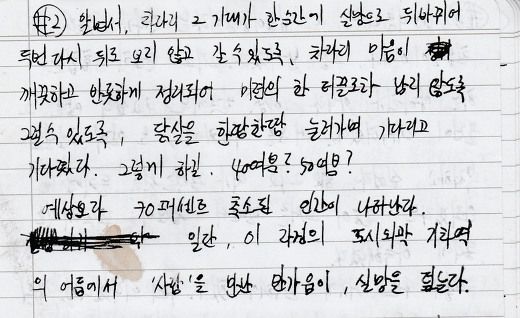 #2) 알면서, 차라리 그 기대가 한순간에 실망으로 뒤바뀌어
두번 다시 뒤로 보리 않고 갈 수 있도록, 차라리 마음이
깨끗하고 반듯하게 정리되어 미련의 한 터끌로차 남리 않도록
그럴 수 있도록, 닭살을 한땀한땀 눌러가며 기다리고
기다렸다. 그렇게 하길. 40여분? 50여분?
예상보다 70퍼센트 축소된 인간이 나타난다.
일단, 이 과정의 도시외곽 기차역
의 어름에서 '사람'을 만난 반가움이, 실망을 덮는다.